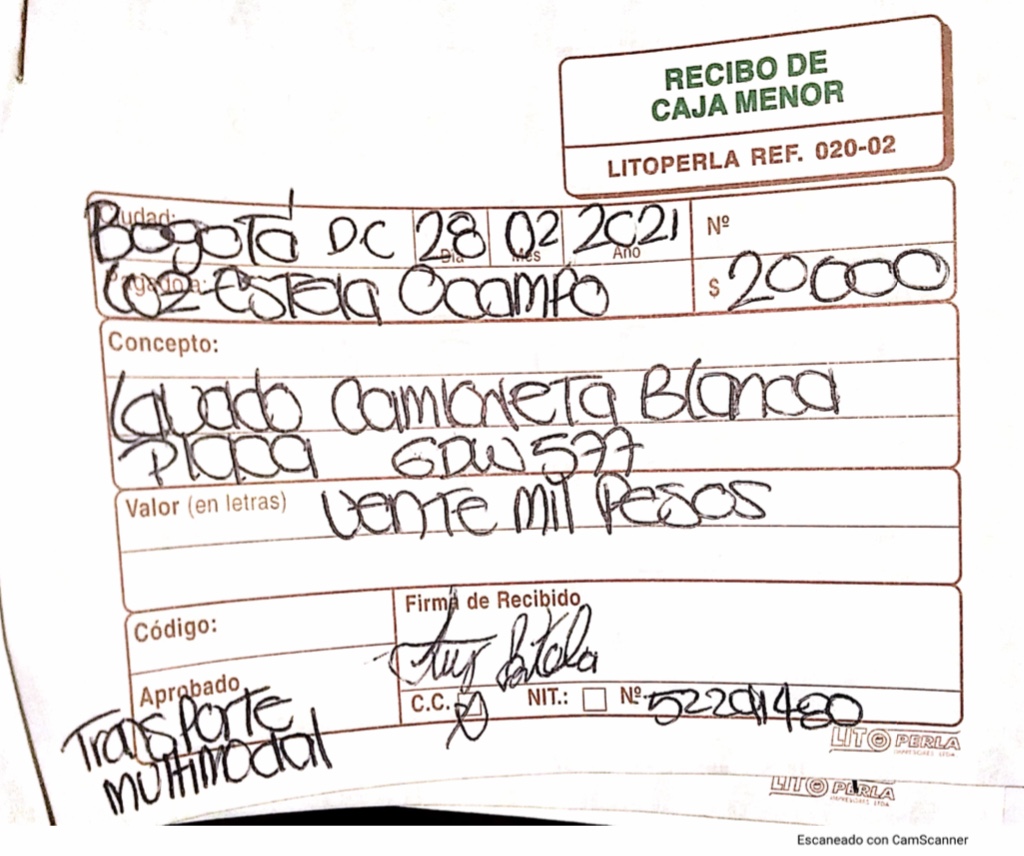 RECIBO DE
CAJA MENOR
LITOPERLA REF. 020-02
Ciudad: Bogotá DC 28 02 2021 Nº
Día Mes Año
Pagado a: Luz Estela Ocampo $ 20000
Concepto:
Lavado Camioneta Blanca
Placa GDW577
Valor (en letras) Vente mil Pesos
Código:
Firma de Recibido
Luz Estela
Aprobado
C.C. NIT.: Nº
Transporte
multimodal
LITO PERLA
IMPRESORES LTDA
LITO PERLA
IMPRESORES LTDA
Escaneado con CamScanner